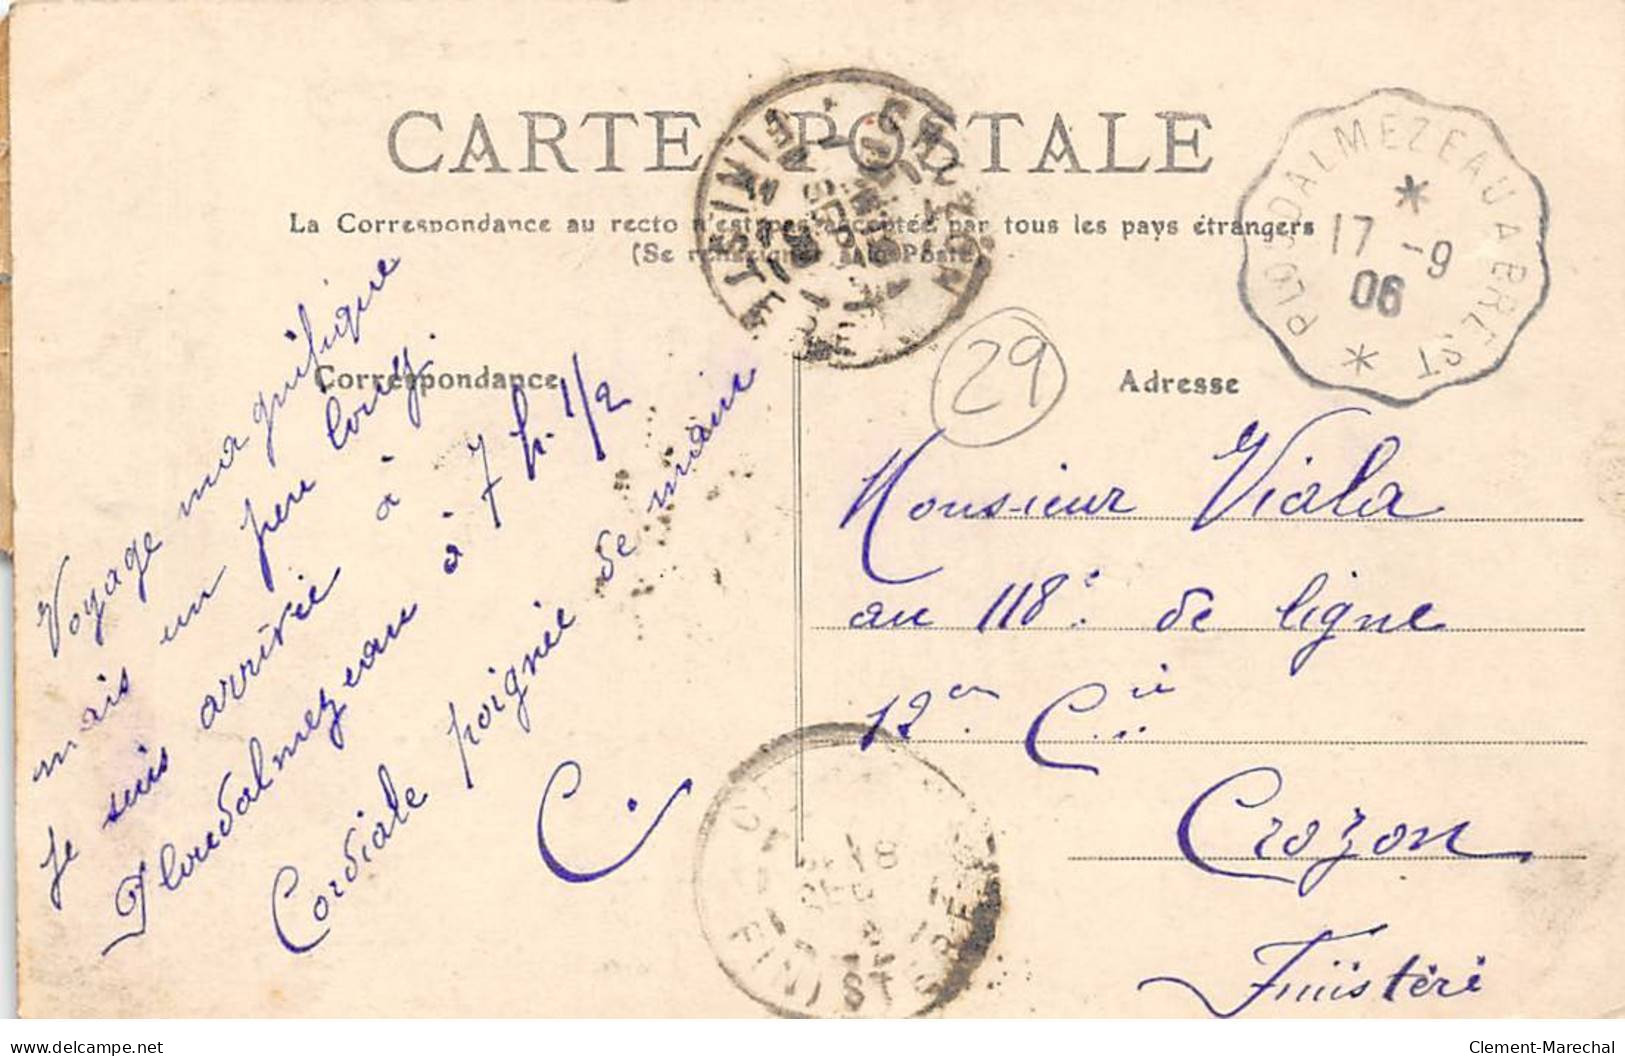 CARTE POSTALE
La Correspondance au recto n'est pas acceptée par tous les pays étrangers
(Se renseigner à la Poste)
Correspondance
Adresse
PLOUDALMEZEAU A BREST
17 -9
06
FINISTERE
29
Voyage magnifique
mais un peu long.
Je suis arrivé à
Ploudalmezeau à 7 h. 1/2
Cordiale poignée de main
C.
Monsieur Viala
au 118e de ligne
12e Cie
Crozon
Finistère
FINISTERE
delcampe.net
Clement-Marechal